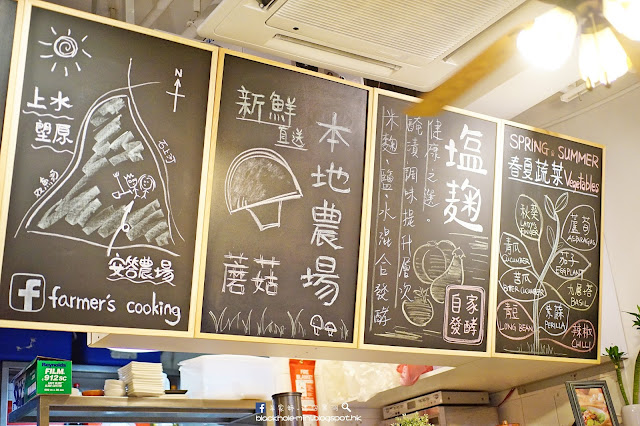 上水
塱原
N
雙魚河
石上河
安譽農場
f farmer's cooking
新鮮
直送
本地農場
蘑菇
塩麹
健康之選．
醃漬調味提升層次
米麴、鹽、水混合發酵
自家
發酵
SPRING & SUMMER
春夏蔬菜 Vegetables
秋葵
LADY'S FINGER
蘆筍
ASPARAGUS
青瓜
CUCUMBER
茄子
EGGPLANT
苦瓜
BITTER CUCUMBER
九層塔
BASIL
青豆
LONG BEAN
紫蘇
PERILLA
辣椒
CHILLI
FILM
.912SC
blackhole-mini.blogspot.hk